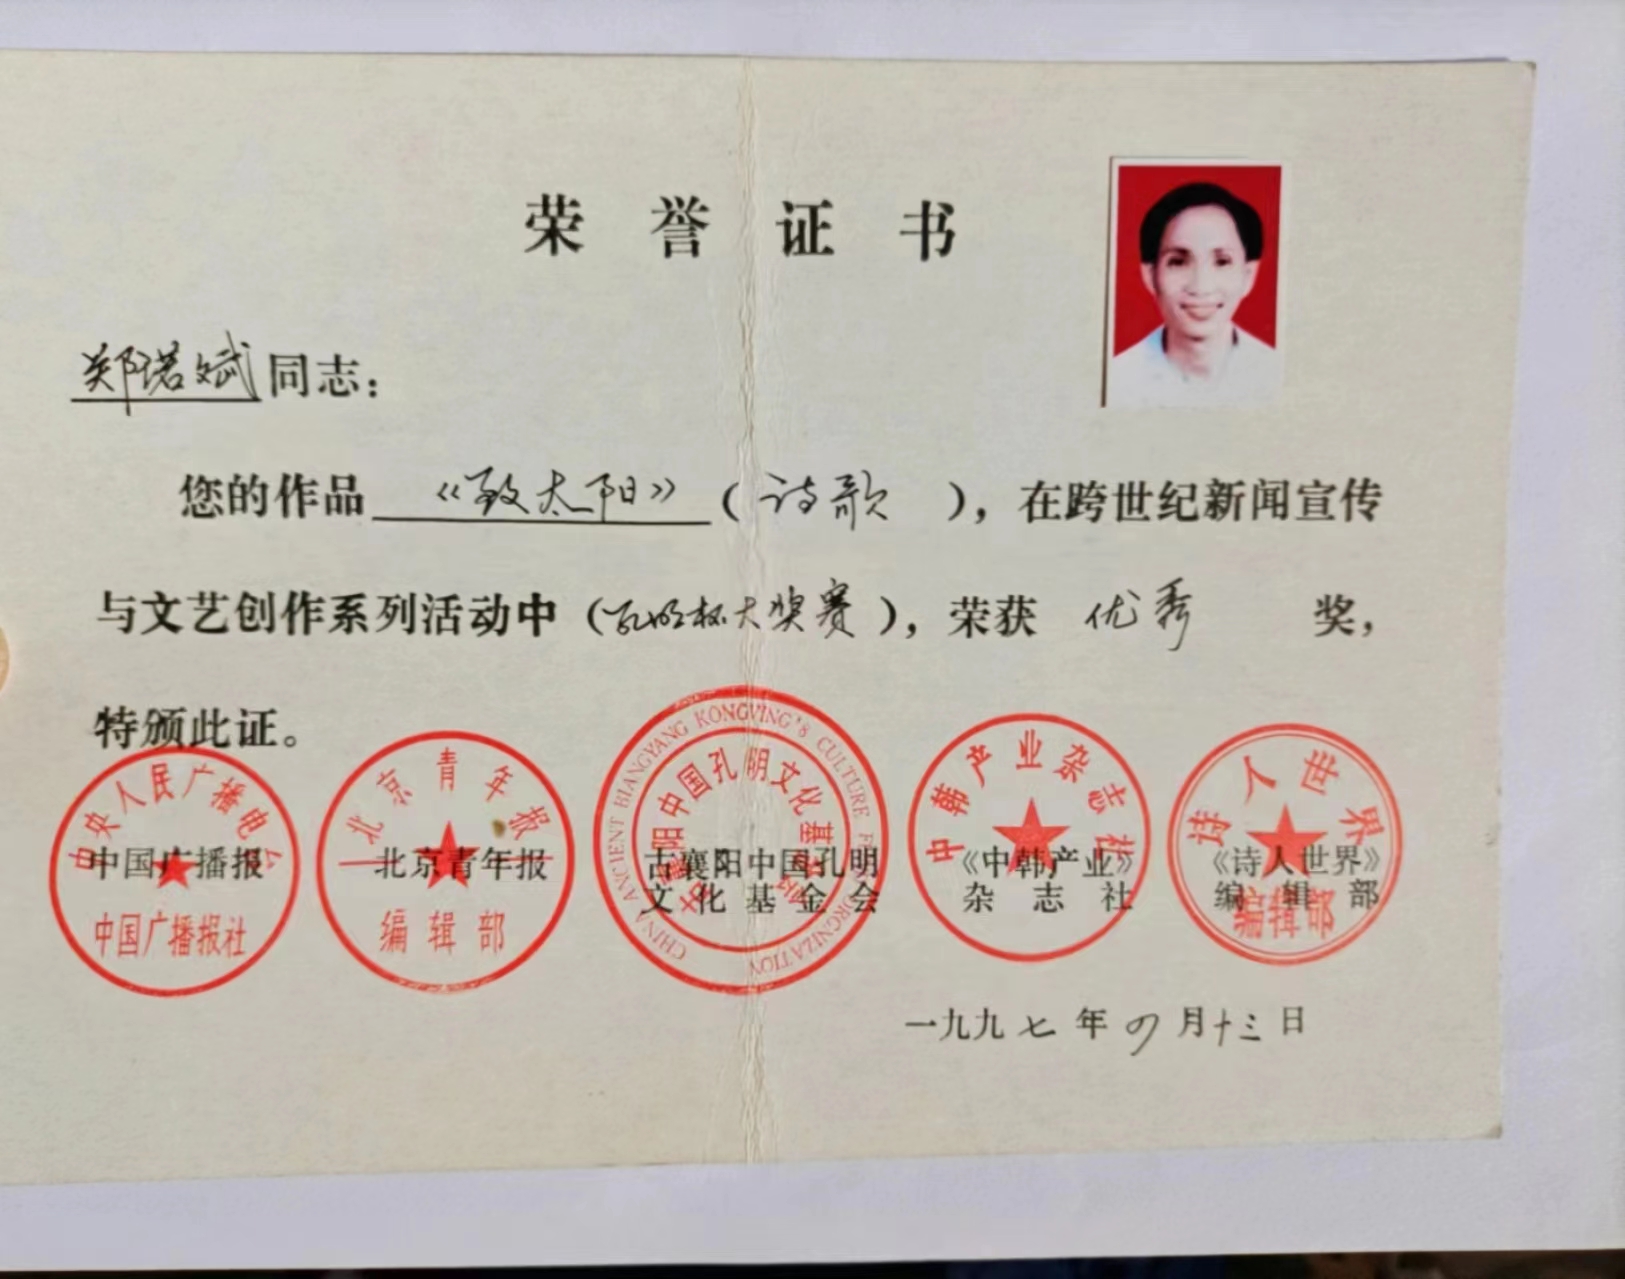 荣誉证书
郑诺斌同志：
您的作品《致太阳》（诗歌），在跨世纪新闻宣传
与文艺创作系列活动中（孔明杯大奖赛），荣获 优秀 奖，
特颁此证。
中央人民广播电台
中国广播报
中国广播报社
北京青年报
北京青年报
编辑部
CHINA ANCIENT BIANGYANG KONGVING'S CULTURE ORGNIZATIOY
中国孔明文化基
古襄阳中国孔明
文化基金会
中韩产业杂志社
《中韩产业》
杂志社
诗人世界
《诗人世界》
编辑部
编辑部
一九九七年四月十三日